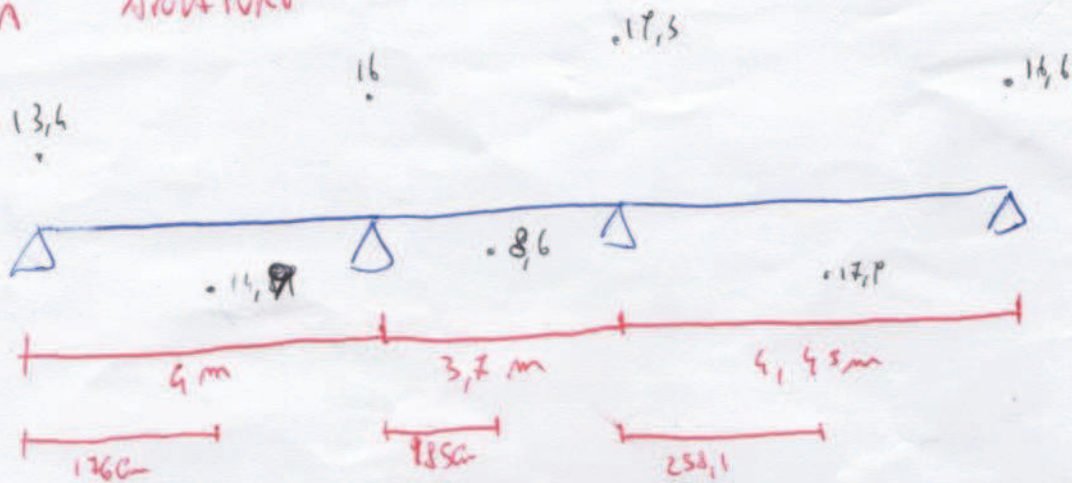 17,5
16
16,6
13,4
8,6
4 m
3,7 m
4,45m
176cm
185cm
258,1